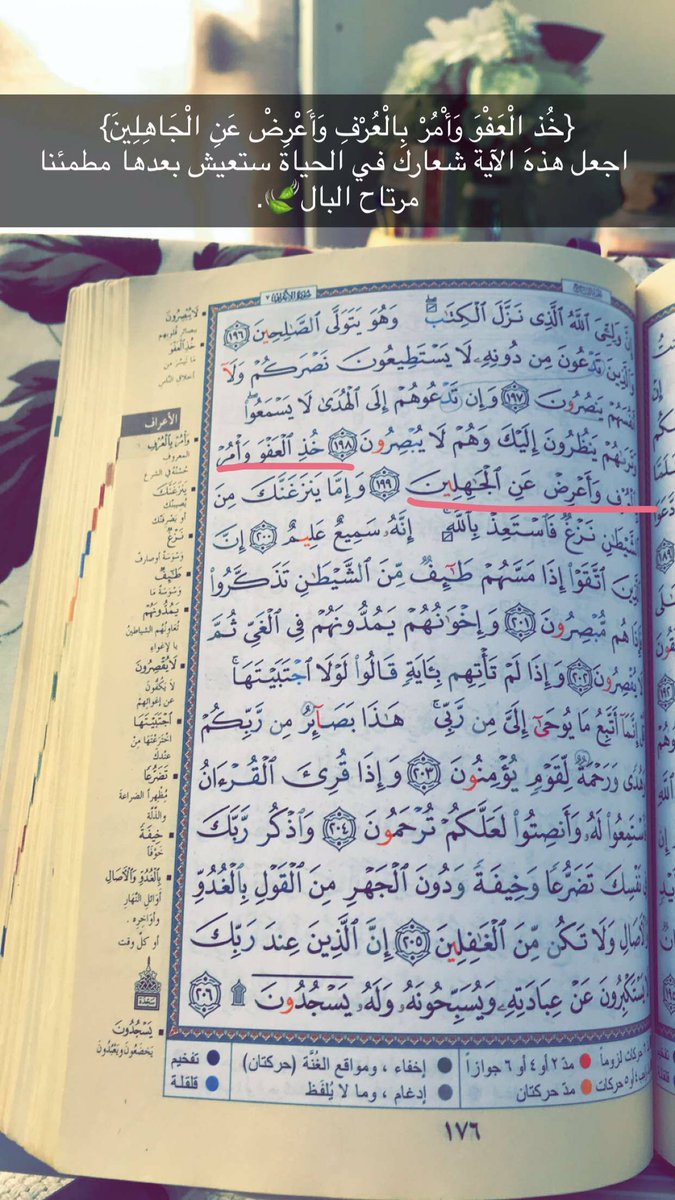 {خُذِ الْعَفْوَ وَأْمُرْ بِالْعُرْفِ وَأَعْرِضْ عَنِ الْجَاهِلِينَ}
اجعل هذهَ الآية شعارك في الحياة ستعيش بعدها مطمئنا
مرتاح البال🍃.
إِنَّ وَلِـِّۧيَ ٱللَّهُ ٱلَّذِي نَزَّلَ ٱلۡكِتَٰبَۖ وَهُوَ يَتَوَلَّى ٱلصَّٰلِحِينَ ١٩٦
وَٱلَّذِينَ تَدۡعُونَ مِن دُونِهِۦ لَا يَسۡتَطِيعُونَ نَصۡرَكُمۡ وَلَآ
أَنفُسَهُمۡ يَنصُرُونَ ١٩٧ وَإِن تَدۡعُوهُمۡ إِلَى ٱلۡهُدَىٰ لَا يَسۡمَعُواْۖ
وَتَرَىٰهُمۡ يَنظُرُونَ إِلَيۡكَ وَهُمۡ لَا يُبۡصِرُونَ ١٩٨ خُذِ ٱلۡعَفۡوَ وَأۡمُرۡ
بِٱلۡعُرۡفِ وَأَعۡرِضۡ عَنِ ٱلۡجَٰهِلِينَ ١٩٩ وَإِمَّا يَنزَغَنَّكَ مِنَ
ٱلشَّيۡطَٰنِ نَزۡغٞ فَٱسۡتَعِذۡ بِٱللَّهِۚ إِنَّهُۥ سَمِيعٌ عَلِيمٌ ٢٠٠ إِنَّ
ٱلَّذِينَ ٱتَّقَوۡاْ إِذَا مَسَّهُمۡ طَٰٓئِفٞ مِّنَ ٱلشَّيۡطَٰنِ تَذَكَّرُواْ
فَإِذَا هُم مُّبۡصِرُونَ ٢٠١ وَإِخۡوَٰنُهُمۡ يَمُدُّونَهُمۡ فِي ٱلۡغَيِّ ثُمَّ
لَا يُقۡصِرُونَ ٢٠٢ وَإِذَا لَمۡ تَأۡتِهِم بِـَٔايَةٖ قَالُواْ لَوۡلَا ٱجۡتَبَيۡتَهَاۚ
قُلۡ إِنَّمَآ أَتَّبِعُ مَا يُوحَىٰٓ إِلَيَّ مِن رَّبِّيۚ هَٰذَا بَصَآئِرُ مِن رَّبِّكُمۡ
وَهُدٗى وَرَحۡمَةٞ لِّقَوۡمٖ يُؤۡمِنُونَ ٢٠٣ وَإِذَا قُرِئَ ٱلۡقُرۡءَانُ
فَٱسۡتَمِعُواْ لَهُۥ وَأَنصِتُواْ لَعَلَّكُمۡ تُرۡحَمُونَ ٢٠٤ وَٱذۡكُر رَّبَّكَ
فِي نَفۡسِكَ تَضَرُّعٗا وَخِيفَةٗ وَدُونَ ٱلۡجَهۡرِ مِنَ ٱلۡقَوۡلِ بِٱلۡغُدُوِّ
وَٱلۡأٓصَالِ وَلَا تَكُن مِّنَ ٱلۡغَٰفِلِينَ ٢٠٥ إِنَّ ٱلَّذِينَ عِندَ رَبِّكَ
لَا يَسۡتَكۡبِرُونَ عَنۡ عِبَادَتِهِۦ وَيُسَبِّحُونَهُۥ وَلَهُۥ يَسۡجُدُونَۤ ۩ ٢٠٦
لَا يَنصُرُونَ
خُذِ العَفْوَ
ما تيسّر من
أخلاق النّاس
الأعراف
وَأْمُرْ بِالعُرْفِ
المعروف
حُسْنُهُ في الشرع
يَنزَغَنَّكَ
يُصِيبَنَّكَ
أو يَصْرِفَنَّكَ
نَزْغٌ
وَسْوَسَةٌ أو صارفٌ
طَٰئِفٌ
وَسْوَسَةٌ ما
يَمُدُّونَهُمْ
تُعَاوِنُهُم الشياطينُ
بالإغواءِ
لَا يُقْصِرُونَ
لا يَكُفُّونَ
عن إغوائِهِمْ
اجْتَبَيْتَهَا
اخْتَرَعْتَهَا مِنْ
عِنْدِكَ
تَضَرُّعًا
مُظْهِراً الضراعةَ
والذِّلّةَ
خِيفَةً
خَوْفاً
بِالْغُدُوِّ وَالْآصَالِ
أوَائِلِ النَّهَارِ
وأوَاخِرِه
أو كلّ وقت
يَسْجُدُونَ
يَخضَعُونَ ويَعْبُدُونَ
مدّ ٢ أو ٤ أو ٦ جوازاً
مدّ حركتان
إخفاء ، ومواقع الغُنَّة (حركتان)
إدغام ، وما لا يُلفَظ
تفخيم
قلقلة
١٧٦